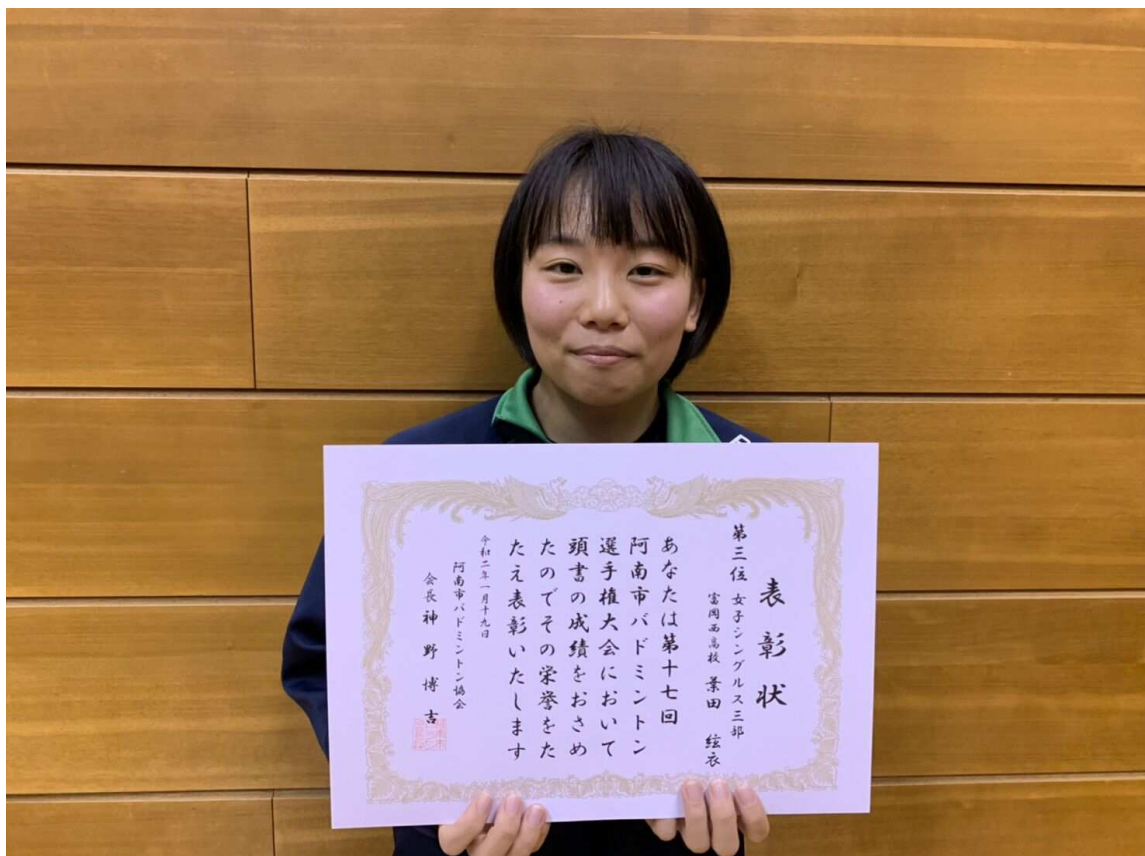 表彰状
第三位 女子シングルス三部
富岡西高校 葉田 絃衣
あなたは第十七回
阿南市バドミントン
選手権大会において
頭書の成績をおさめ
たのでその栄誉をた
たえ表彰いたします
令和二年一月十九日
阿南市バドミントン協会
会長 神野博吉